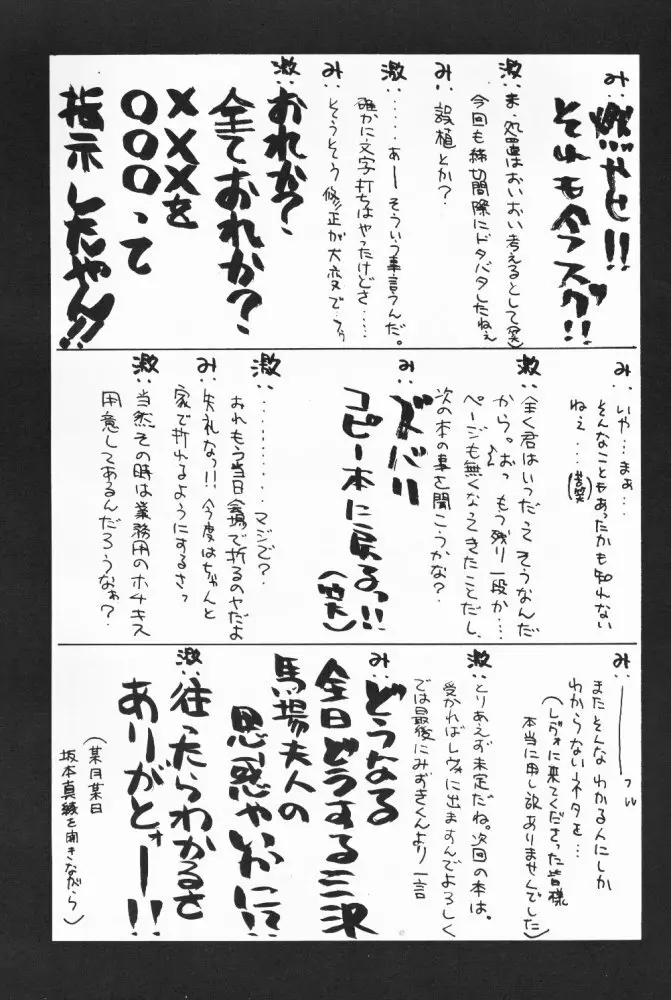 み:燃やせ!!
それも今スグ!!
激:ま・処置はおいおい考えるとして(笑)
今回も締切間際にドタバタしたねぇ
み:誤植とか?
激:……あーそういう事言うんだ。
確かに文字打ちはやったけどさ……
み:そうそう修正が大変で…って
激:おれか?
全ておれか?
×××を
○○○って
指示したやん!!
み:いや…まぁ…
そんなこともあったかも知れない
ねぇ…(苦笑)
激:全く君はいつだってそうなんだ
から。おっもう残り一段か……
ページも無くなってきたことだし、
次の本の事を聞こうかな?
み:ズバリ
コピー本に戻るっ!!
激:…………マジで?
おれもう当日会場で折るのヤだよ
み:失礼なっ!!今度はちゃんと
家で折れるようにするさっ
激:当然その時は業務用のホチキス
用意してあるんだろうなぁ?
み:――フッ
またそんなわかる人にしか
わからないネタを…
(レヴォに来てくださった皆様
本当に申し訳ありませんでした)
激:とりあえず未定だね。次回の本は。
受かればレヴォに出ますんでよろしく
では最後にみずきくんより一言
み:どうなる
全日どうする三沢
馬場夫人の
思惑やいかに!?
激:往ったらわかるさ
ありがとォーー!!
(某月某日
坂本真綾を聞きながら)